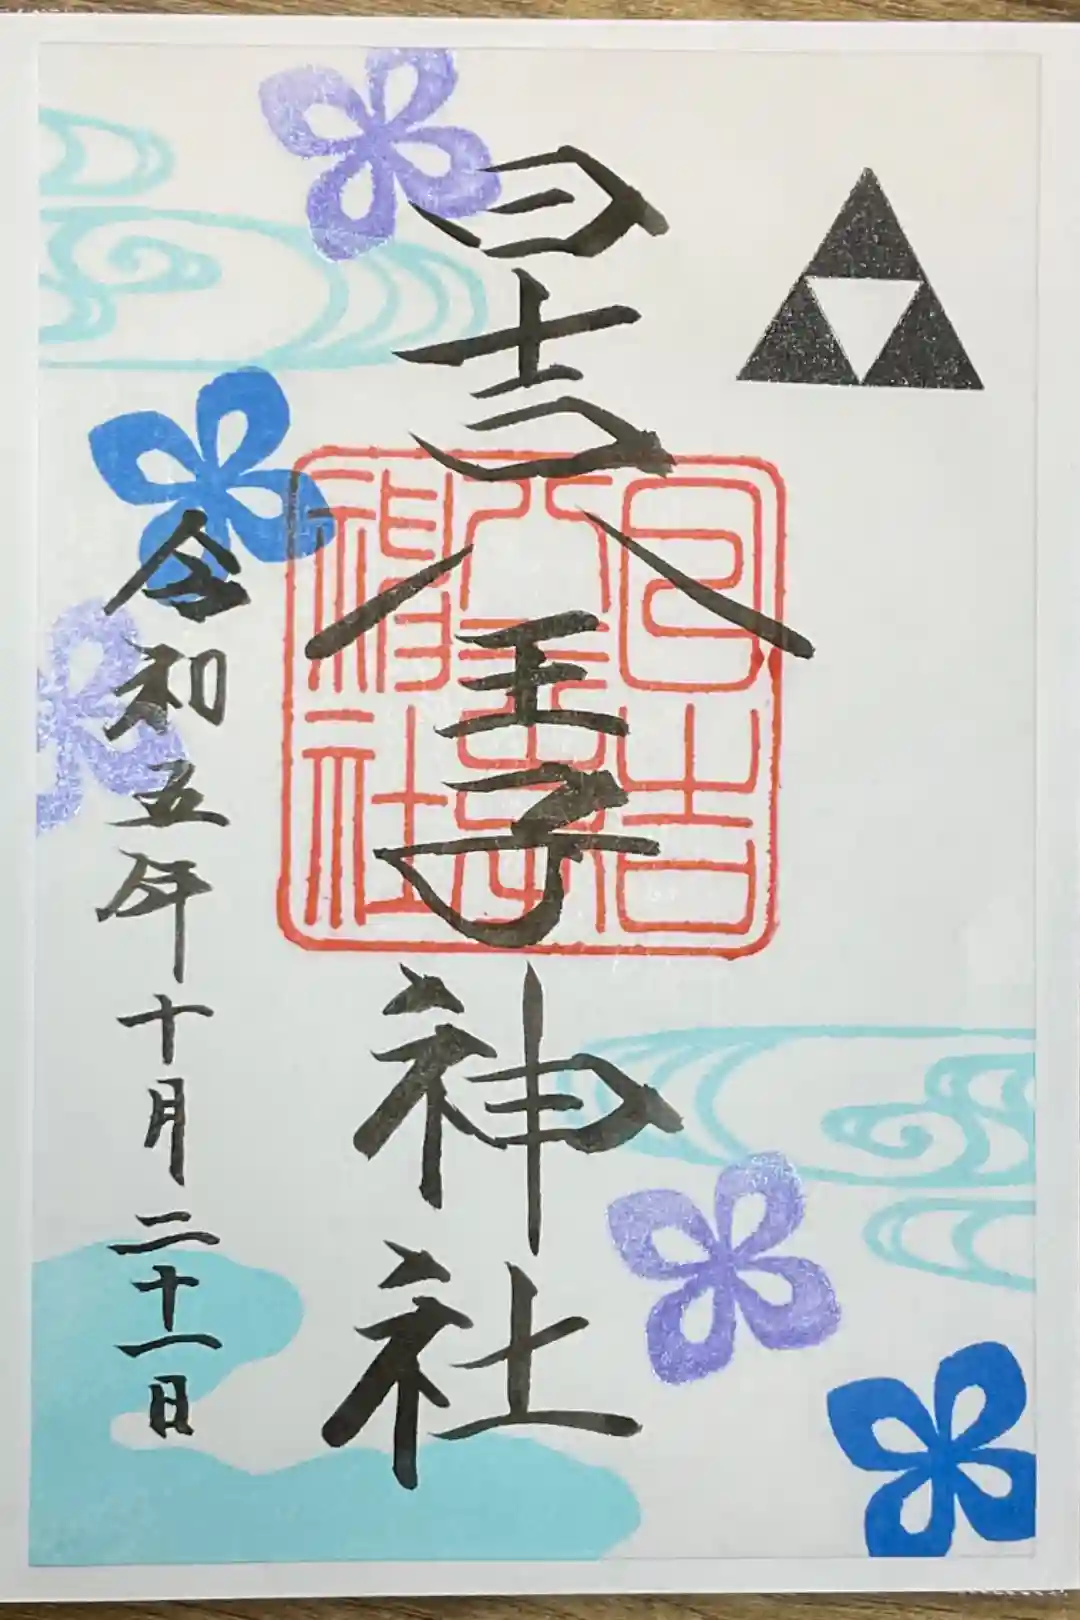 日吉八王子神社
日吉
八王子
神社
令和五年十月二十一日